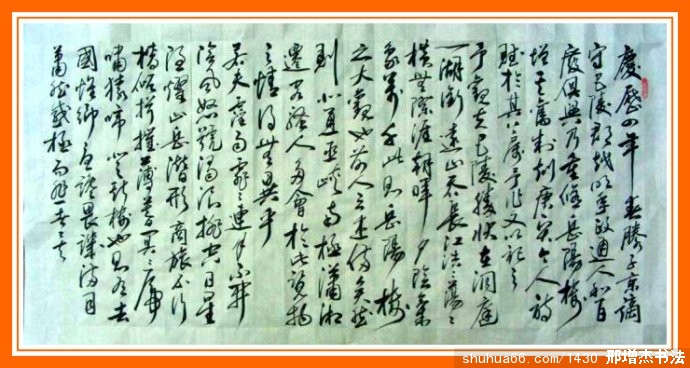 慶歷四年春滕子京謫
守巴陵郡越明年政通人和百
廢俱興乃重修岳陽樓
增其舊制刻唐賢今人詩
賦於其上屬予作文以記之
予觀夫巴陵勝狀在洞庭
一湖銜遠山吞長江浩浩蕩蕩
橫無際涯朝暉夕陰氣
象萬千此則岳陽樓
之大觀也前人之述備矣然
則北通巫峽南極瀟湘
遷客騷人多會於此覽物
之情得無異乎
若夫霪雨霏霏連月不開
陰風怒號濁浪排空日星
隱燿山岳潛形商旅不行
檣傾楫摧薄暮冥冥虎
嘯猿啼登斯樓也則有去
國懷鄉憂讒畏譏滿目
蕭然感極而悲者矣
shuhua66.com/1430 邢增杰书法